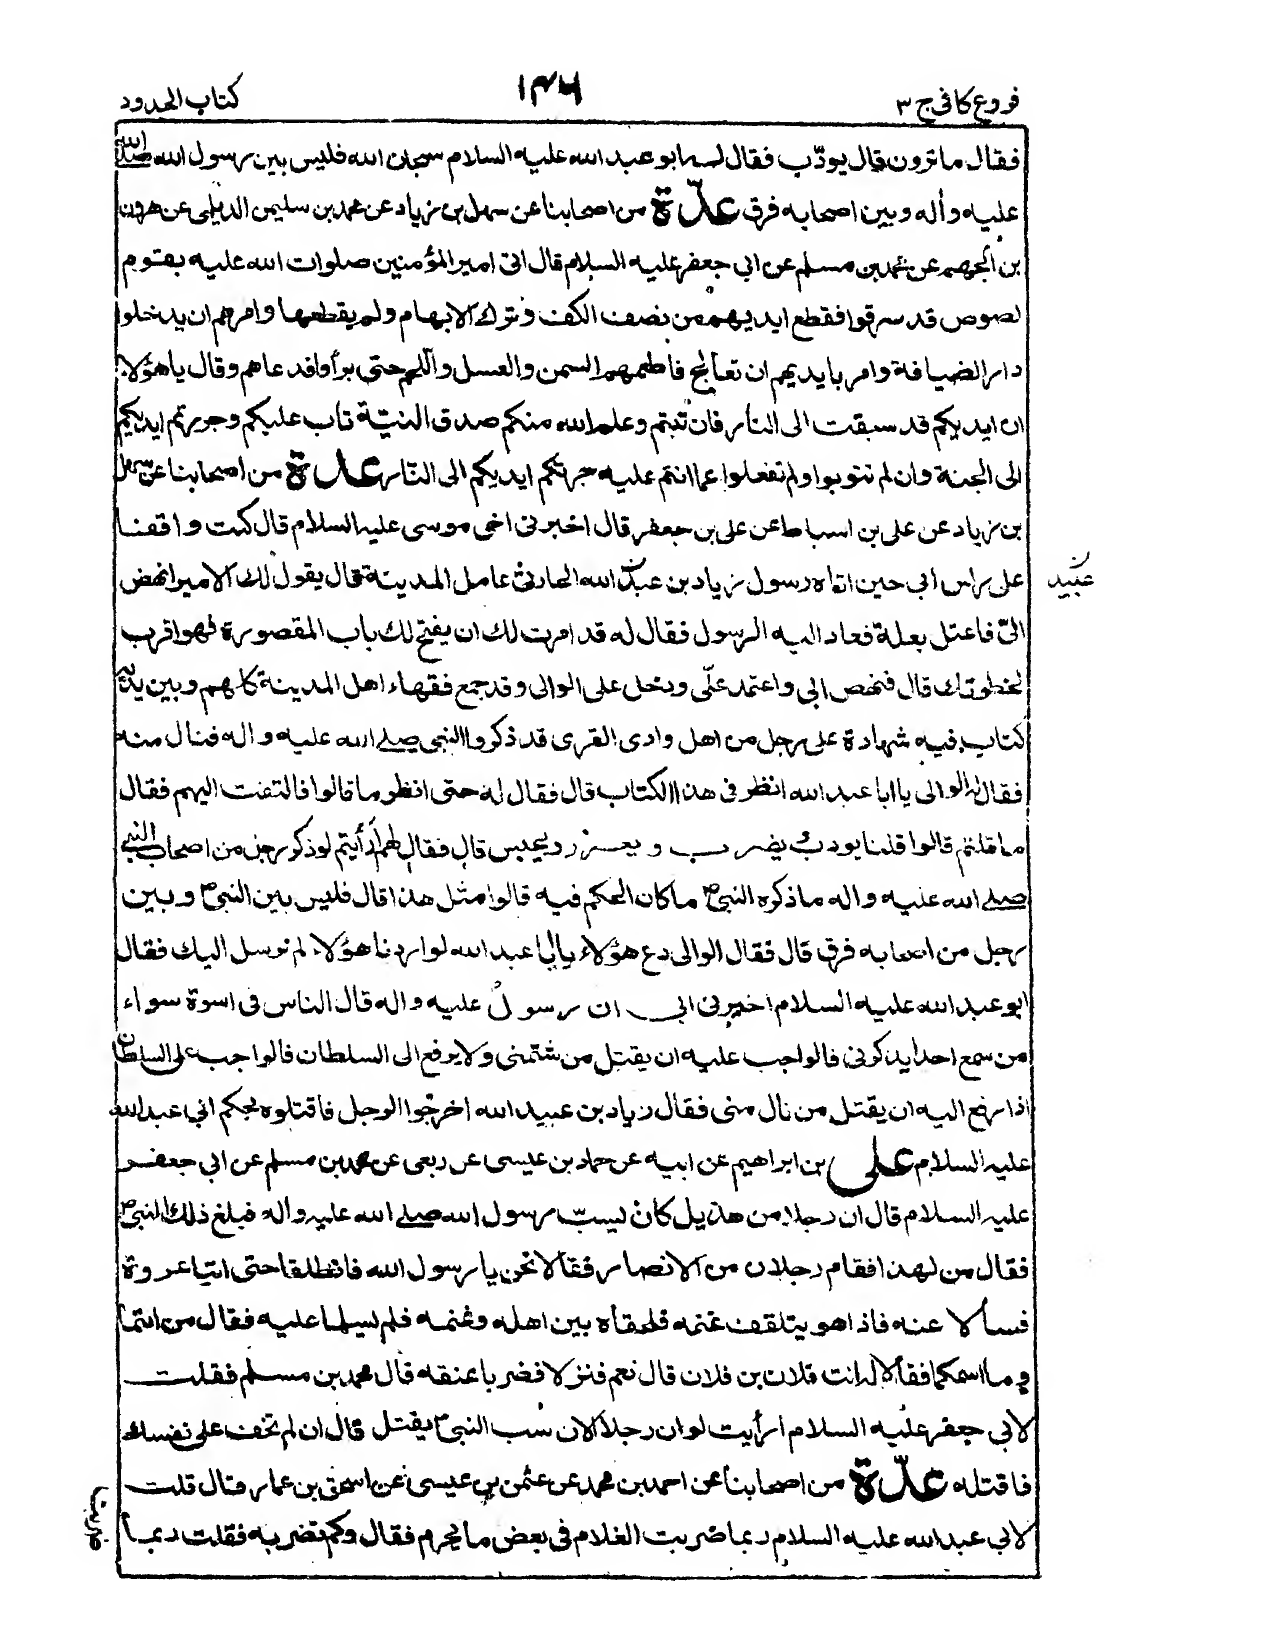 فروع کافی ج ۳
۱۴۶
کتاب الحدود
فقال ما ترون قال یودّب فقال لهم ابو عبد الله علیه السلام سبحان الله فلیس بین رسول الله صلی الله
علیه وآله وبین اصحابه فرق عدّة من اصحابنا عن سهل بن زیاد عن محمد بن سلیمن الدیلمی عن هرون
بن الجهم عن محمد بن مسلم عن ابی جعفر علیه السلام قال اتی امیر المؤمنین صلوات الله علیه بقوم
لصوص قد سرقوا فقطع ایدیهم من نصف الکف وترک الابهام ولم یقطعها وامرهم ان یدخلوا
دار الضیافة وامر بایدیهم ان تعالج فاطعمهم السمن والعسل واللحم حتی برأوا فدعاهم وقال یا هؤلاء
ان ایدیکم قد سبقت الی النار فان تبتم وعلم الله منکم صدق النیّة تاب علیکم وجررتم ایدیکم
الی الجنة وان لم تتوبوا ولم تفعلوا عما انتم علیه جرتکم ایدیکم الی النار عدة من اصحابنا عن سهل
بن زیاد عن علی بن اسباط عن علی بن جعفر قال اخبرنی اخی موسی علیه السلام قال کنت واقفا
علی راس ابی حین اتاه رسول زیاد بن عبد الله الحارثی عامل المدینة فقال یقول لک الامیر انهض
عبید
الیّ فاعتل بعلة فعاد الیه الرسول فقال له قد امرت لک ان یفتح لک باب المقصورة فهو اقرب
لخطوتک قال فنهض ابی واعتمد علیّ ودخل علی الوالی وقد جمع فقهاء اهل المدینة کلهم وبین یدیه
کتاب فیه شهادة علی رجل من اهل وادی القری قد ذکروا النبی صلی الله علیه واله فنال منه
فقال له الوالی یا ابا عبد الله انظر فی هذا الکتاب قال فقال له حتی انظر ما قالوا فالتفت الیهم فقال
ما قلتم قالوا قلنا یودب ویضرب ویعزر ویحبس قال فقال لهم أرأیتم لو ذکر رجل من اصحاب النبی
صلی الله علیه واله ما ذکره النبی ما کان الحکم فیه قالوا مثل هذا قال فلیس بین النبی وبین
رجل من اصحابه فرق قال فقال الوالی دع هؤلاء یا ابا عبد الله لو اردنا هؤلاء لم نرسل الیک فقال
ابو عبد الله علیه السلام اخبرنی ابی ان رسول علیه واله قال الناس فی اسوة سواء
من سمع احدا یذکرنی فالواجب علیه ان یقتل من شتمنی ولا یرفع الی السلطان فالواجب علی السلطان
اذا رفع الیه ان یقتل من نال منی فقال زیاد بن عبید الله اخرجوا الرجل فاقتلوه بحکم ابی عبد الله
علیه السلام علی بن ابراهیم عن ابیه عن حماد بن عیسی عن ربعی عن محمد بن مسلم عن ابی جعفر
علیه السلام قال ان رجلا من هذیل کان یسبّ رسول الله صلی الله علیه واله فبلغ ذلک النبی
فقال من لهذا فقام رجلان من الانصار فقالا نحن یا رسول الله فانطلقا حتی اتیا عروة
فسألا عنه فاذا هو یتلقف غنمه فلحقاه بین اهله وغنمه فلم یسلما علیه فقال من انتما
وما اسمکما فقالا له انت فلان بن فلان قال نعم فنزلا فضربا عنقه قال محمد بن مسلم فقلت
لابی جعفر علیه السلام ارأیت لو ان رجلا الان سب النبی یقتل قال ان لم تخف علی نفسک
فاقتله عدّة من اصحابنا عن احمد بن محمد عن عثمن بن عیسی عن اسحق بن عمار قال قلت
لابی عبد الله علیه السلام ربما ضربت الغلام فی بعض ما یحرم فقال وکم تضربه فقلت ربما
ضربت